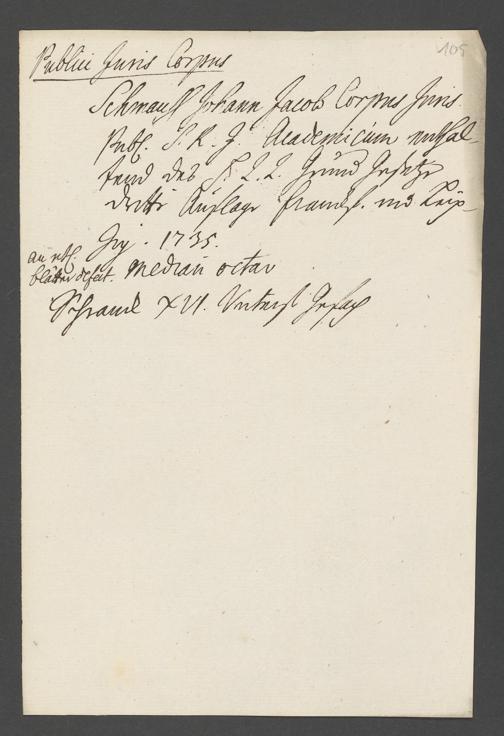 105
Publici Juris Corpus
Schmauß Johann Jacob Corpus Juris
Publ. S. R. J. Academicum enthal-
tend des H. R. R. Grund Gesetze
dritte Auflage Frankf. und Leip-
zig. 1735.
an etl.
blätter defect. median octav
Schrank XVI. Unterst Gefach